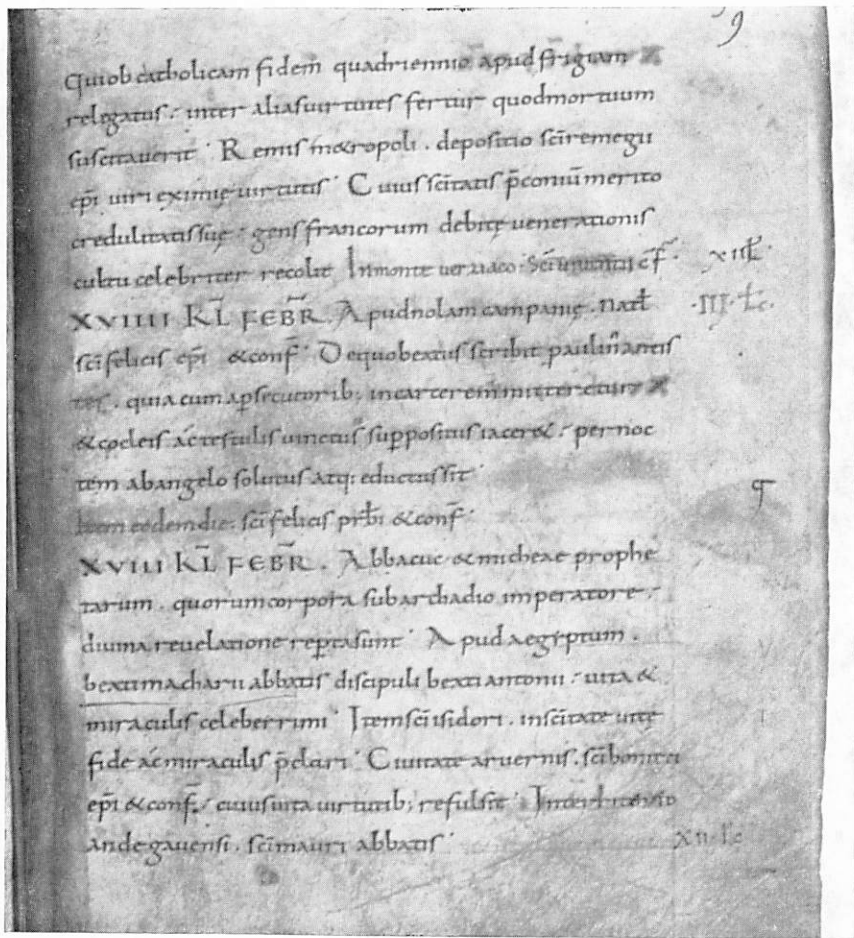 9
qui ob catholicam fidem̄ quadriennio apud frigiam
relegatus; inter alias uirtutes fertur quod mortuum
suscitauerit. Remis metropoli. depositio sc̄i remegii
ep̄i uiri eximię uirtutis. Cuius sc̄itatis p̄coniū merito
credulitatis suę; gens francorum debitę uenerationis
cultu celebriter recolit. In monte uerziaco. Sc̄i cf̄. XII l̄c
XVIIII KL̄ FEBR̄. Apud nolam campanię. natł ·III· l̄c.
sc̄i felicis ep̄i & conf̄. De quo beatus scribit paulin᾽ antis
tes. quia cum a ꝑsecutorib; in carcerem̄ mitteretur
& cocleis ac testulis uinctus suppositus iaceret; per noc
tem ab angelo solutus atq; eductus sit.
Item eodem die. sc̄i felicis prb̄i & conf̄.
XVIII KL̄ FEBR̄. Abbacuc & micheae prophe
tarum. quorum corpora sub archadio imperatore;
diuina reuelatione reperta sunt. Apud aegyptum.
beati macharii abbatis discipuli beati antonii; uita &
miraculis celeberrimi. Item sc̄i isidori. in sc̄itate uitę
fide ac miraculis p̄clari. Ciuitate aruernis. sc̄i boniti
ep̄i & conf̄; cuius uita uirtutib; refulsit. In territorio
andegauensi. sc̄i mauri abbatis. XII l̄c